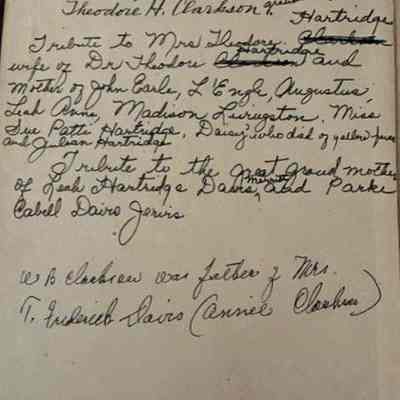 Theodore H. Clarkson, great
Hartridge
Tribute to Mrs Theodore. Clarkson
Hartridge
wife of Dr Theodore Clarkson and
Mother of John Earle, L'Engle, Augustus,
Leah Anne, Madison Livingston, Miss
Sue Patti Hartridge, Daisy, who died of yellow fever
and Julian Hartridge
Tribute to the great grand mother
of Leah Hartridge Davis, and Parke
Cabell Davis Jervis
W B Clarkson was father of Mrs.
T. Frederick Davis (Annie Clarkson)